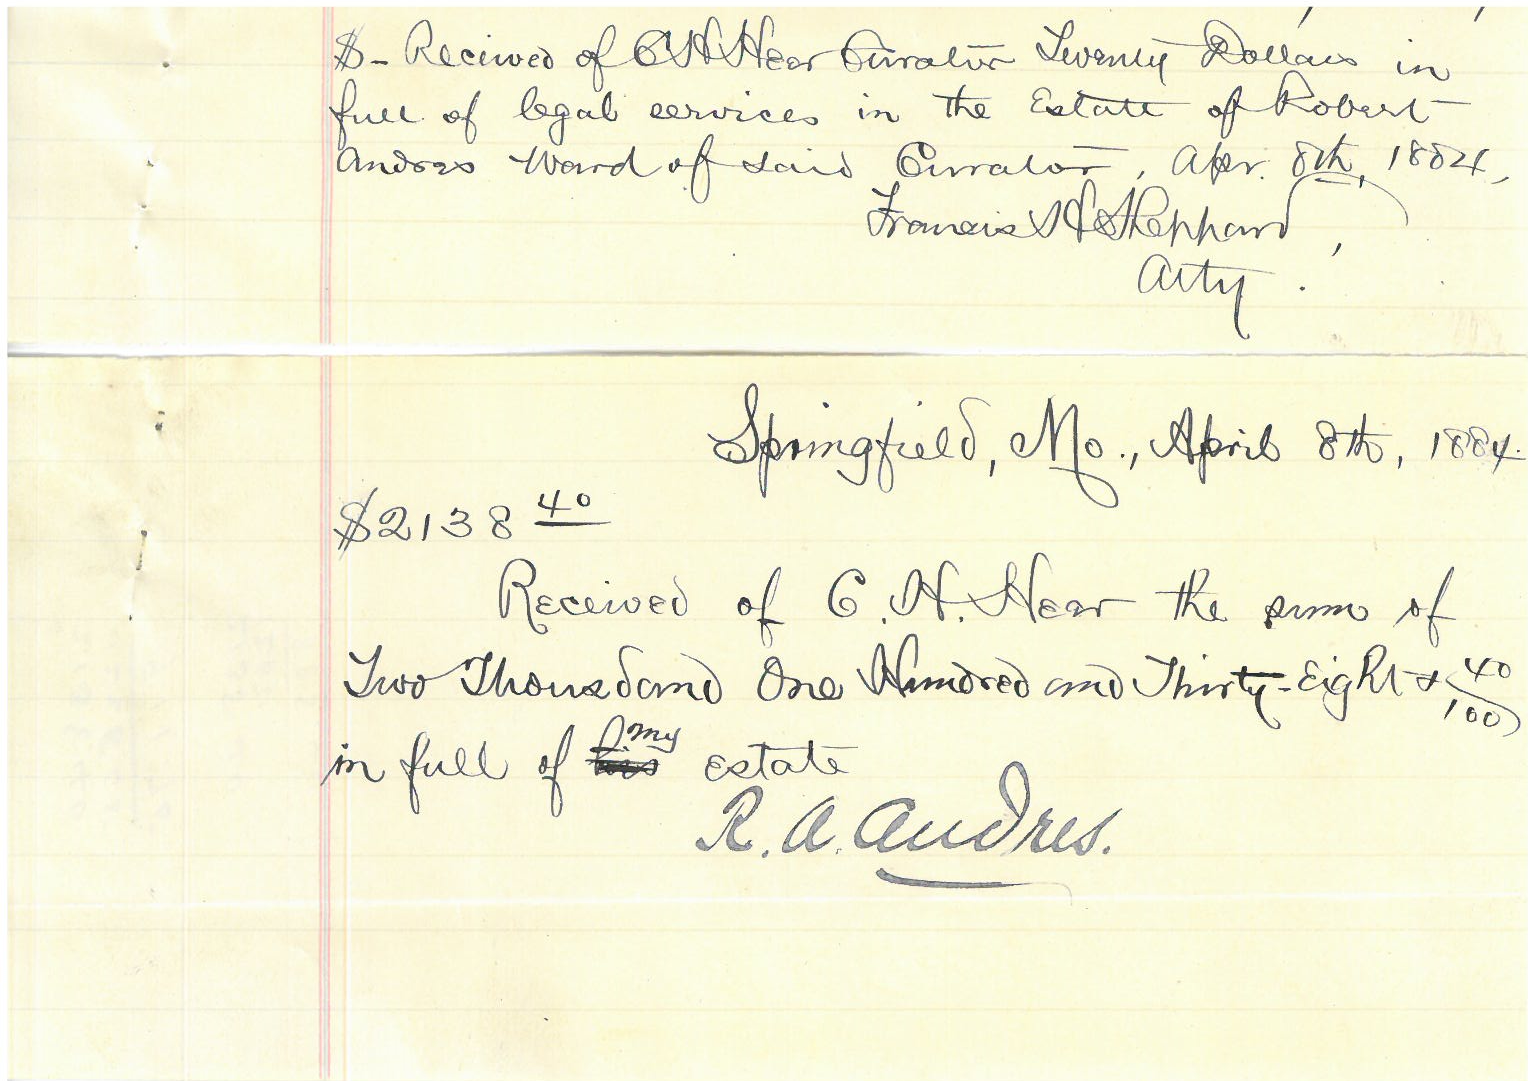 $- Received of C H Hear Curator Twenty Dollars in
full of legal services in the Estate of Robert
Andres Ward of said Curator, Apr. 8th, 1884,
Francis H Sheppard,
Atty.
Springfield, Mo., April 8th, 1884.
$2138 40
Received of C. H. Hear the sum of
Two Thousand One Hundred and Thirty-Eight & 40/100
my
in full of his estate
R. A. Andres.